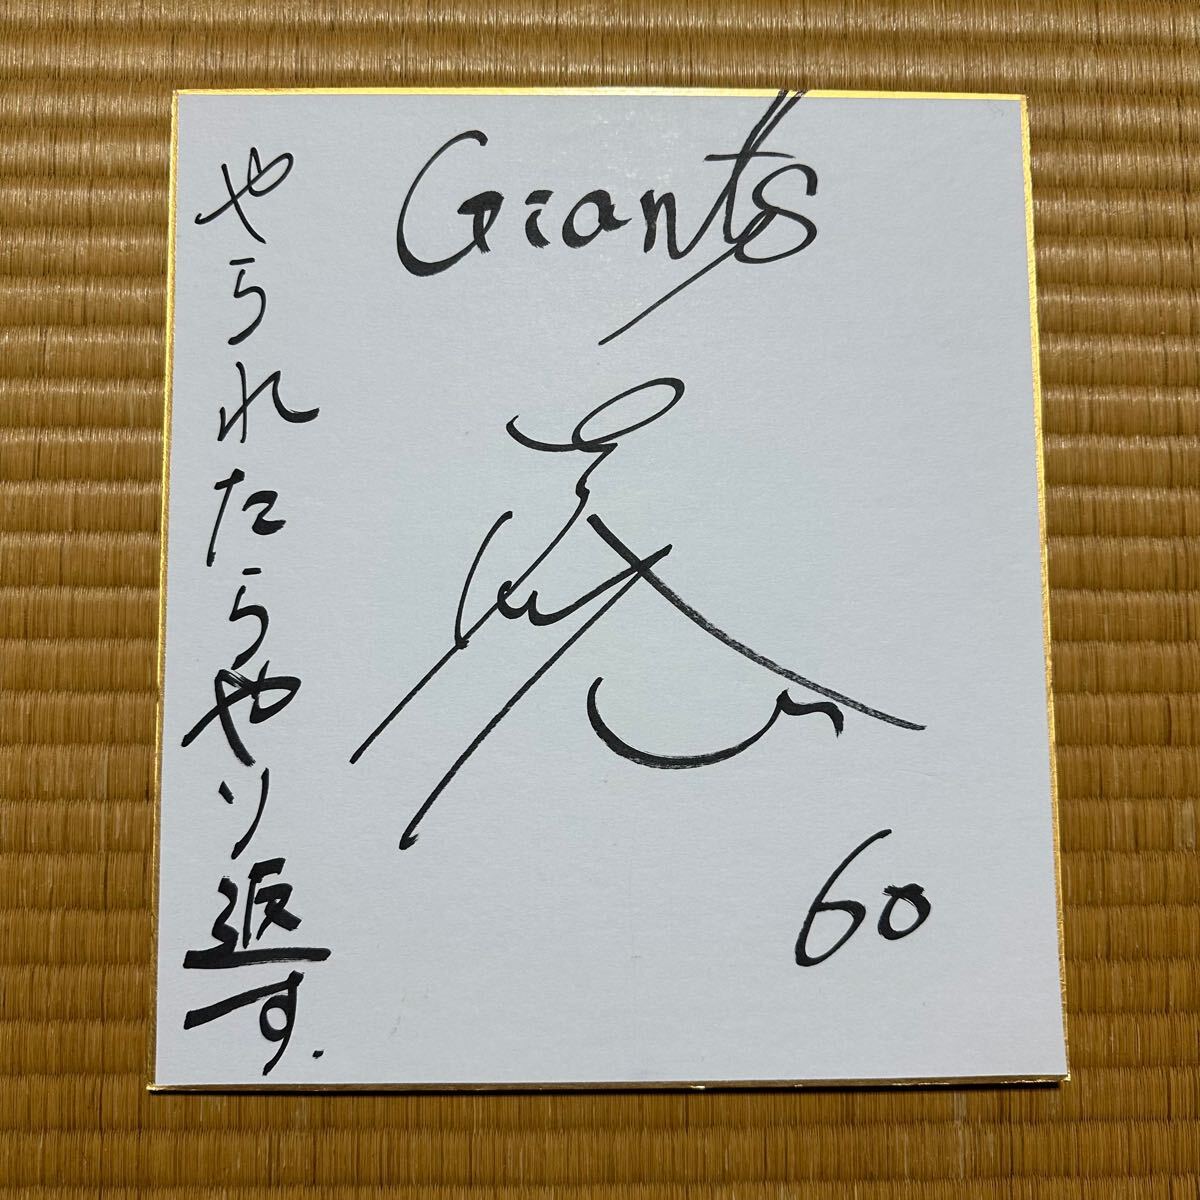 Giants
やられたらやり返す.
60